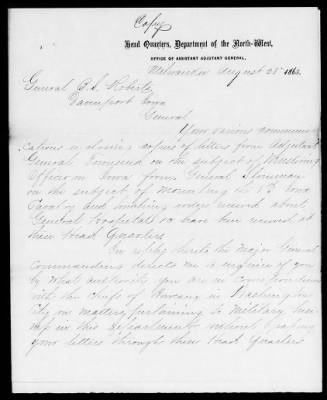 Copy
Head Quarters, Department of the North-West,
OFFICE OF ASSISTANT ADJUTANT GENERAL,
Milwaukee August 28th 1863.
General B. S. Roberts
Davenport Iowa
General
Your various communi
cations inclosing copies of letters from Adjutant
General Townsend on the subject of Mustering
Officer in Iowa from General Stoneman
on the subject of mounting the 8th Iowa
Cavalry and building used about
General Hospitals &c have been received at
these Head Quarters
In reply thereto the Major General
Commanding directs me to inquire of you
by what authority you are in correspondence
with the chiefs of Bureaus in Washington
City on matters pertaining to Military
in this Department without passing
your letters through these Head Quarters